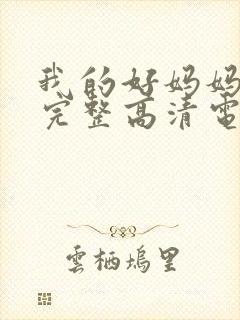 我的好妈妈
完整高清電
雲栖塢里